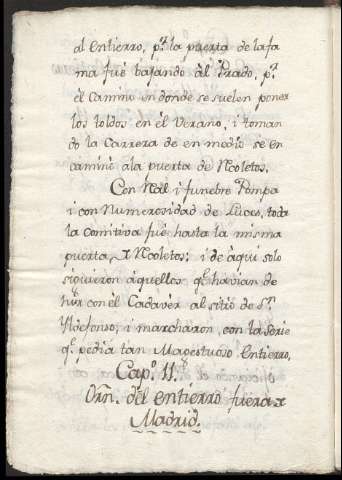 al entierro, pr. la puerta de la fa
ma fué bajando àl Prado, pr.
el Camino en donde se suelen poner
los toldos en el Verano, i toman
do la Carrera de en medio se en
caminò a la puerta de Recoletos.
Con Rèal i funebre Pompa
i con Numerosidad de Luces, toda
la Comitiva fuè hasta la misma
puerta de Recoletos; i de àqui solo
siguieron àquellos qe. havian de
hir con èl Cadàver al sitio de Sn.
Yldefonso, i marcharon, con la serie
qe. pedia tan Magestuoso Entierro,
Capo. 11o.
Orn. dèl entierro fuera de
Madrid.